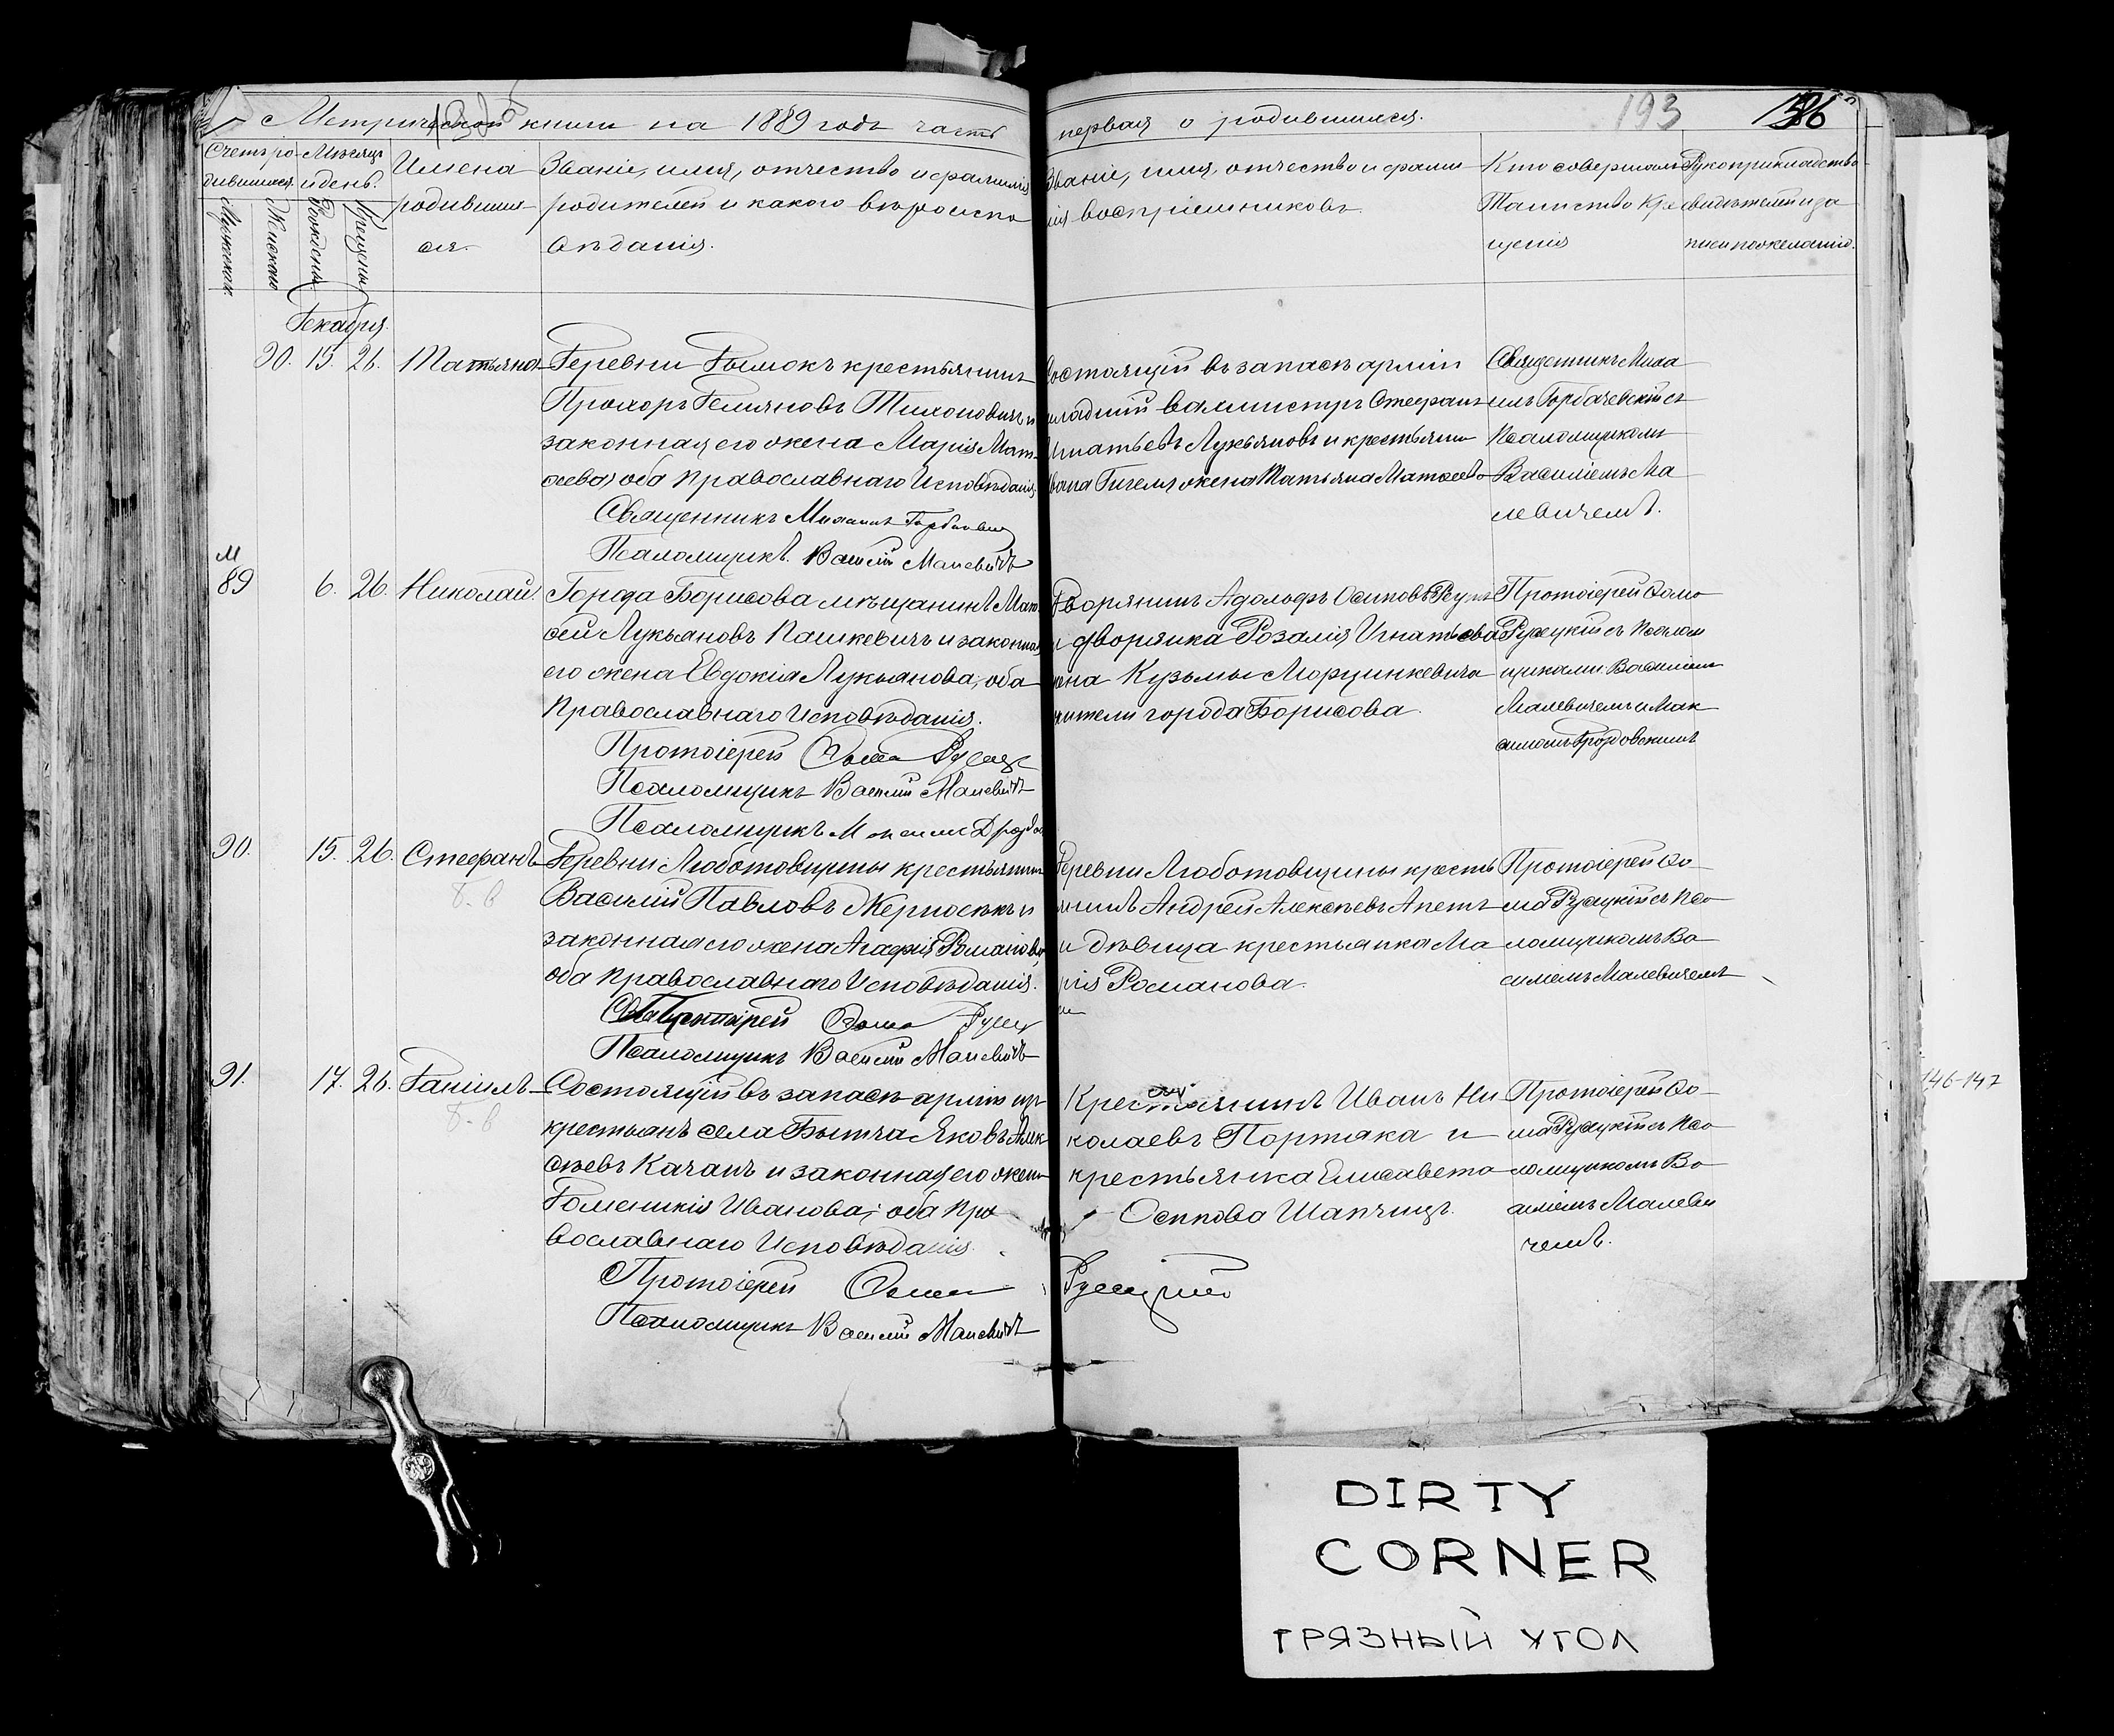 Метрической книги на 1889 годъ часть первая о родившихся.
193
Счетъ ро-
дившихся.
Мѣсяцъ
и день.
Мужеска.
Женскаго
Рожденія
Крещенія
Имена
родивших
ся.
Званіе, имя, отчество и фамилія
родителей и какого вѣроиспо
вѣданія.
Званіе, имя, отчество и фами
лія воспріемниковъ.
Кто совершалъ
Таинство Кре
щенія
Рукоприкладство
свидѣтелей и за
писи по желанію.
Декабря.
90. 15. 26. Татьяна
Деревни Дымокъ крестьянинъ
Прохоръ Демьяновъ Тихоновичъ и
законная его жена Марія Мат-
ѳева, оба Православнаго Исповѣданія.
Священникъ Михаилъ Горбачевскій
Псаломщикъ Василій Малевичъ
Состоящій въ запасѣ арміи
младшій вахмистръ Стефанъ
Игнатьевъ Лукьяновъ и крестьяни
Ивана Гигеля жена Татьяна Матѳеева
Священникъ Миха
илъ Горбачевскій съ
Псаломщикомъ
Василіемъ Ма
левичемъ.
М
89 6. 26. Николай.
Города Борисова мѣщанинъ Мат
ѳей Лукьяновъ Пашкевичъ и законная
его жена Евдокія Лукьянова, оба
Православнаго Исповѣданія.
Протоіерей Ѳома Русецк
Псаломщикъ Василій Малевичъ
Псаломщикъ Максимъ Дроздо
Дворянинъ Адольфъ Осиповъ
и дворянка Розалія Игнатьева
жена Кузьмы Морцинкевича
жители города Борисова.
Протоіерей Ѳома
Русецкій съ Псалом
щиками: Василіемъ
Малевичемъ и Мак
симомъ Дроздовскимъ
90. 15. 26. Стефанъ
Деревни Люботовщины крестьянинъ
Василій Павловъ Жерносѣкъ и
законная его жена Агафія Романова,
оба Православнаго Исповѣданія.
Протоіерей Ѳома Русец
Псаломщикъ Василій Малевичъ
Деревни Люботовщины кресть
янинъ Андрей Алексѣевъ Апетъ
и дѣвица крестьянка Ма
рія Романова.
Протоіерей Ѳо-
ма Русецкій съ Пса
ломщикомъ Ва
силіемъ Малевичемъ
91. 17. 26. Даніилъ
Состоящій въ запасѣ арміи изъ
крестьянъ села Бытча Яковъ Алек
сѣевъ Качанъ и законная его жена
Доменикія Иванова; оба Пра
вославнаго Исповѣданія.
Протоіерей Ѳома Русецкій
Псаломщикъ Василій Малевичъ
Крестьянинъ Иванъ Ни
колаевъ Портяка и
крестьянка Елисавета
Осипова Шапчицъ.
Протоіерей Ѳо-
ма Русецкій съ Пса
ломщикомъ Ва
силіемъ Малеви
чемъ.
146-147
DIRTY
CORNER
ГРЯЗНЫЙ УГОЛ